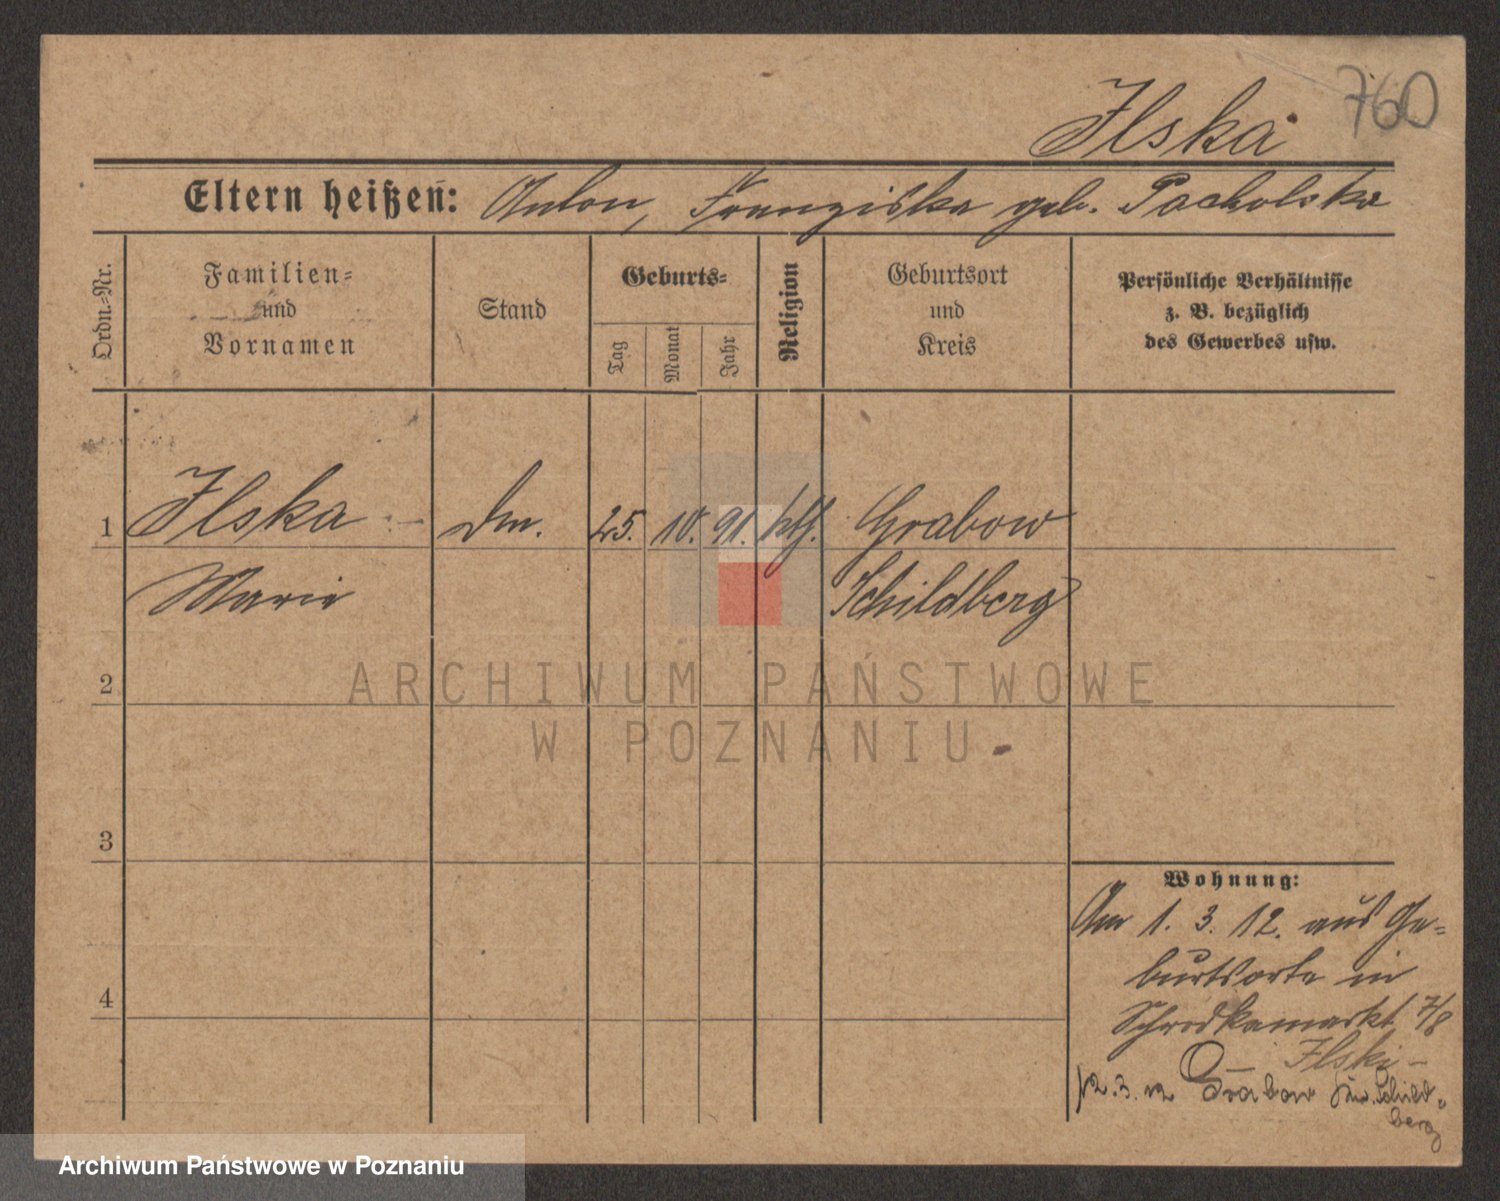 760
Ilska
Eltern heißen: Anton, Franziska geb. Pacholska
Ordn.-Nr.
Familien-
und
Vornamen
Stand
Geburts-
Tag
Monat
Jahr
Religion
Geburtsort
und
Kreis
Persönliche Verhältnisse
z. B. bezüglich
des Gewerbes usw.
1 Ilska 25. 10. 91. kth. Grabow
Marie Schildberg
2
3
4
Wohnung:
Am 1. 3. 12. aus Ge-
burtsorte in
Schrodkamarkt 7/8
Ilski
12. 3. 12 Grabow Kr. Schild-
berg
ARCHIWUM PAŃSTWOWE
W POZNANIU
Archiwum Państwowe w Poznaniu